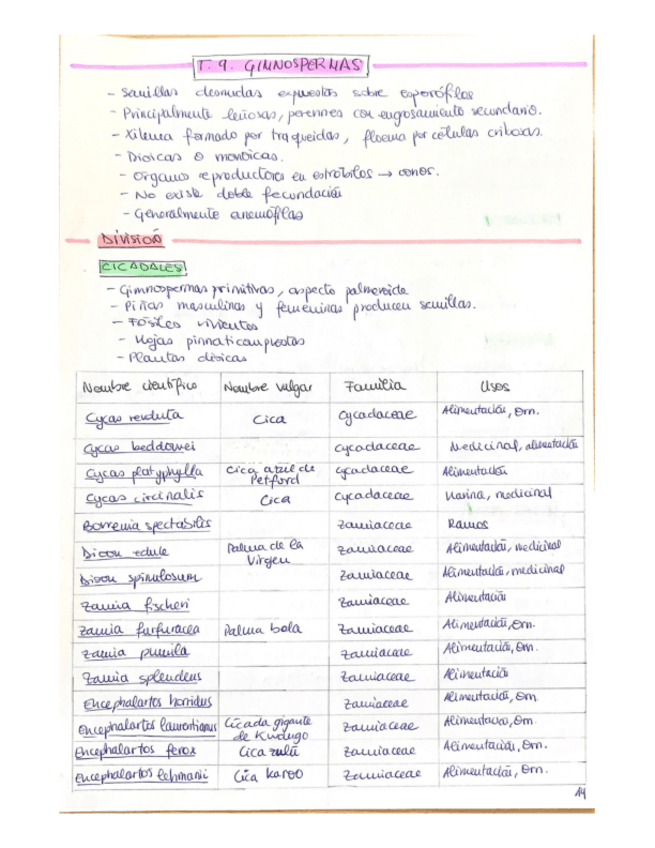 T. 9. GIMNOSPERMAS
- Semillas desnudas expuestas sobre esporófilos
- Principalmente leñosas, perennes con engrosamiento secundario.
- Xilema formado por traqueidas, floema por células cribosas.
- Dioicas o monoicas.
- Órganos reproductores en estróbilos → conos.
- No existe doble fecundación
- Generalmente anemófilas
DIVISIÓN
CICADALES
- Gimnospermas primitivas, aspecto palmeroide
- Piñas masculinas y femeninas producen semillas.
- Fósiles vivientes
- Hojas pinnaticompuestas
- Plantas dioicas
Nombre científico Nombre vulgar Familia Usos
Cycas revoluta Cica Cycadaceae Alimentación, Orn.
Cycas beddomei Cycadaceae Medicinal, alimentación
Cycas platyphylla Cica azul de Petford Cycadaceae Alimentación
Cycas circinalis Cica Cycadaceae Harina, medicinal
Bowenia spectabilis Zamiaceae Ramos
Dioon edule Palma de la Virgen Zamiaceae Alimentación, medicinal
Dioon spinulosum Zamiaceae Alimentación, medicinal
Zamia fischeri Zamiaceae Alimentación
Zamia furfuracea Palma bola Zamiaceae Alimentación, Orn.
Zamia pumila Zamiaceae Alimentación, Orn.
Zamia splendens Zamiaceae Alimentación
Encephalartos horridus Zamiaceae Alimentación, Orn
Encephalartos laurentianus Cícada gigante de Zamiaceae Alimentación, Orn.
Encephalartos ferox Cica zulú Zamiaceae Alimentación, Orn.
Encephalartos lehmanii Cica karoo Zamiaceae Alimentación, Orn.
14